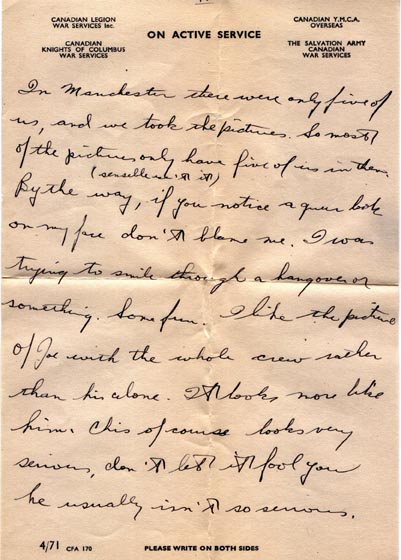 CANADIAN LEGION
WAR SERVICES Inc.
CANADIAN
KNIGHTS OF COLUMBUS
WAR SERVICES
ON ACTIVE SERVICE
CANADIAN Y.M.C.A.
OVERSEAS
THE SALVATION ARMY
CANADIAN
WAR SERVICES
In Manchester there were only five of
us, and we took the pictures. So most
of the pictures only have five of us in them.
(senselle isn't it)
By the way, if you notice a queer look
on my face don't blame me. I was
trying to smile through a hangover or
something. Some fun. I like the picture
of Joe with the whole crew rather
than his alone. It looks more like
him. Chis of course looks very
serious, don't let it fool you
he usually isn't so serious.
4/71 CFA 170
PLEASE WRITE ON BOTH SIDES